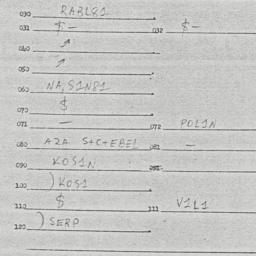 030 RABL81
031 $ - 032 $ -
040
050
060 NA,S1N81
070 $
071 - 072 POL1N
080 A2A S+C+EBEL 081 -
090 KOS1N
100 ) KOS1
110 $ 111 V1L1
120 ) SERP